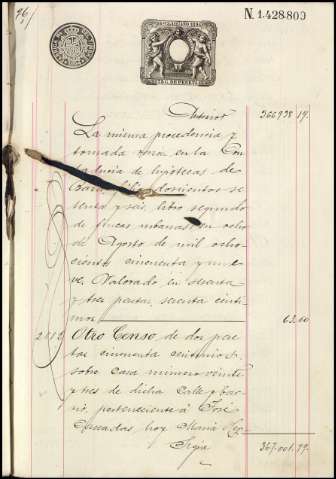 96
N. 1.428.803
Anterior 366938 19.
La misma procedencia y
tomada razon en la Con
taduria de hipotecas de
doscientos se
tenta y seis, libro segundo
de fincas urbanas en ocho
de Agosto de mil ocho
ciento cincuenta y nue
ve. Valorado en sesenta
y tres pesetas, sesenta centi
mos 63.60
Otro Censo de dos pese
tas cincuenta centimos
sobre casa número veinte
y tres de dicha calle y bar
rio, perteneciente á José
hoy Maria
Sigue